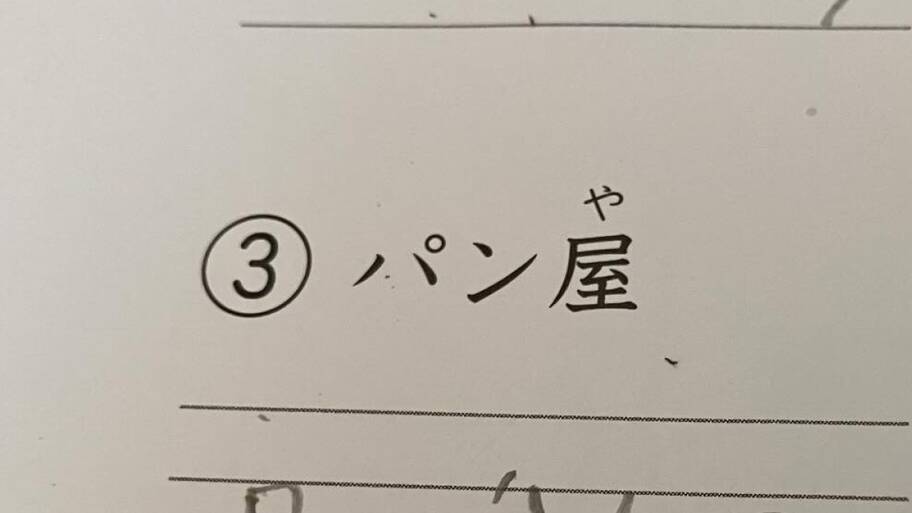 や
③ パン屋